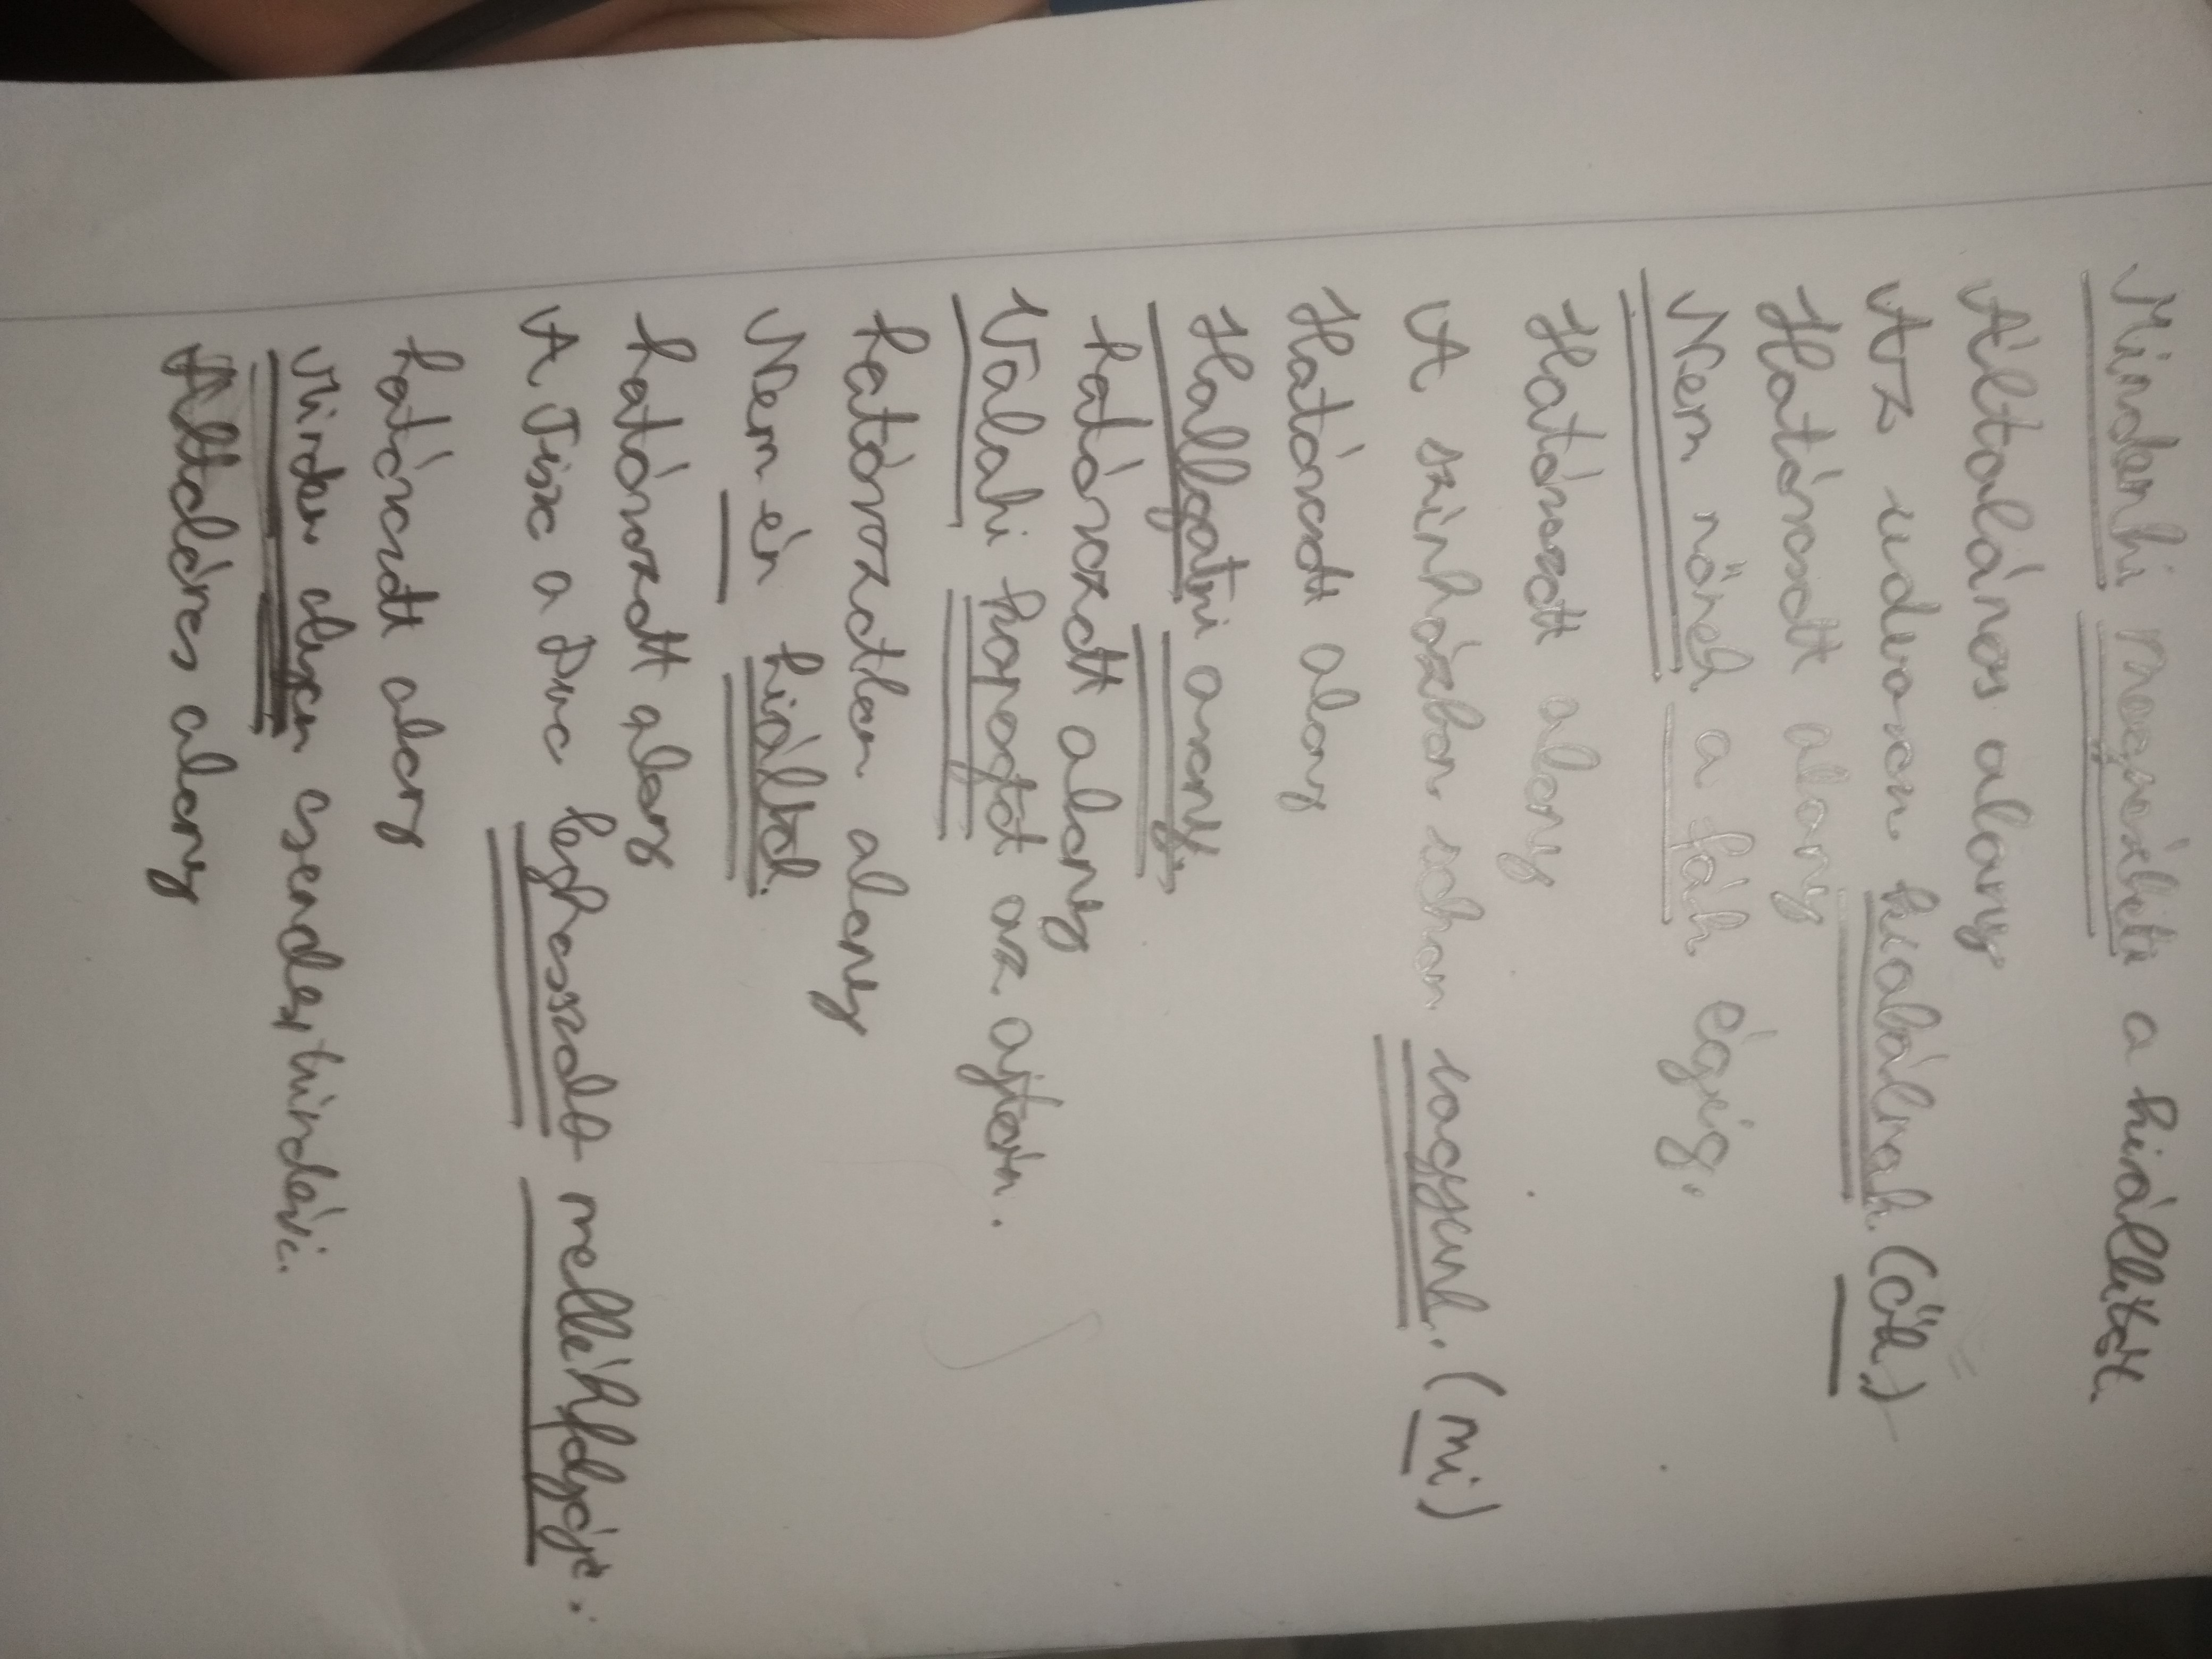 Mindenki megnézheti a kiállítást.
Általános alany
Az udvaron kiabálnak. (ők)
Határozott alany
Nem nőnek a fák égig.
Határozott alany
A színházban sokan vagyunk. (mi)
Határozott alany
Hallgatni arany,
határozott alany
Valaki kopogtat az ajtón.
határozatlan alany
Nem én kiáltok.
határozott alany
A Tisza a Duna leghosszabb mellékfolyója.
határozott alany
Minden olyan csendes, hindói.
Általános alany